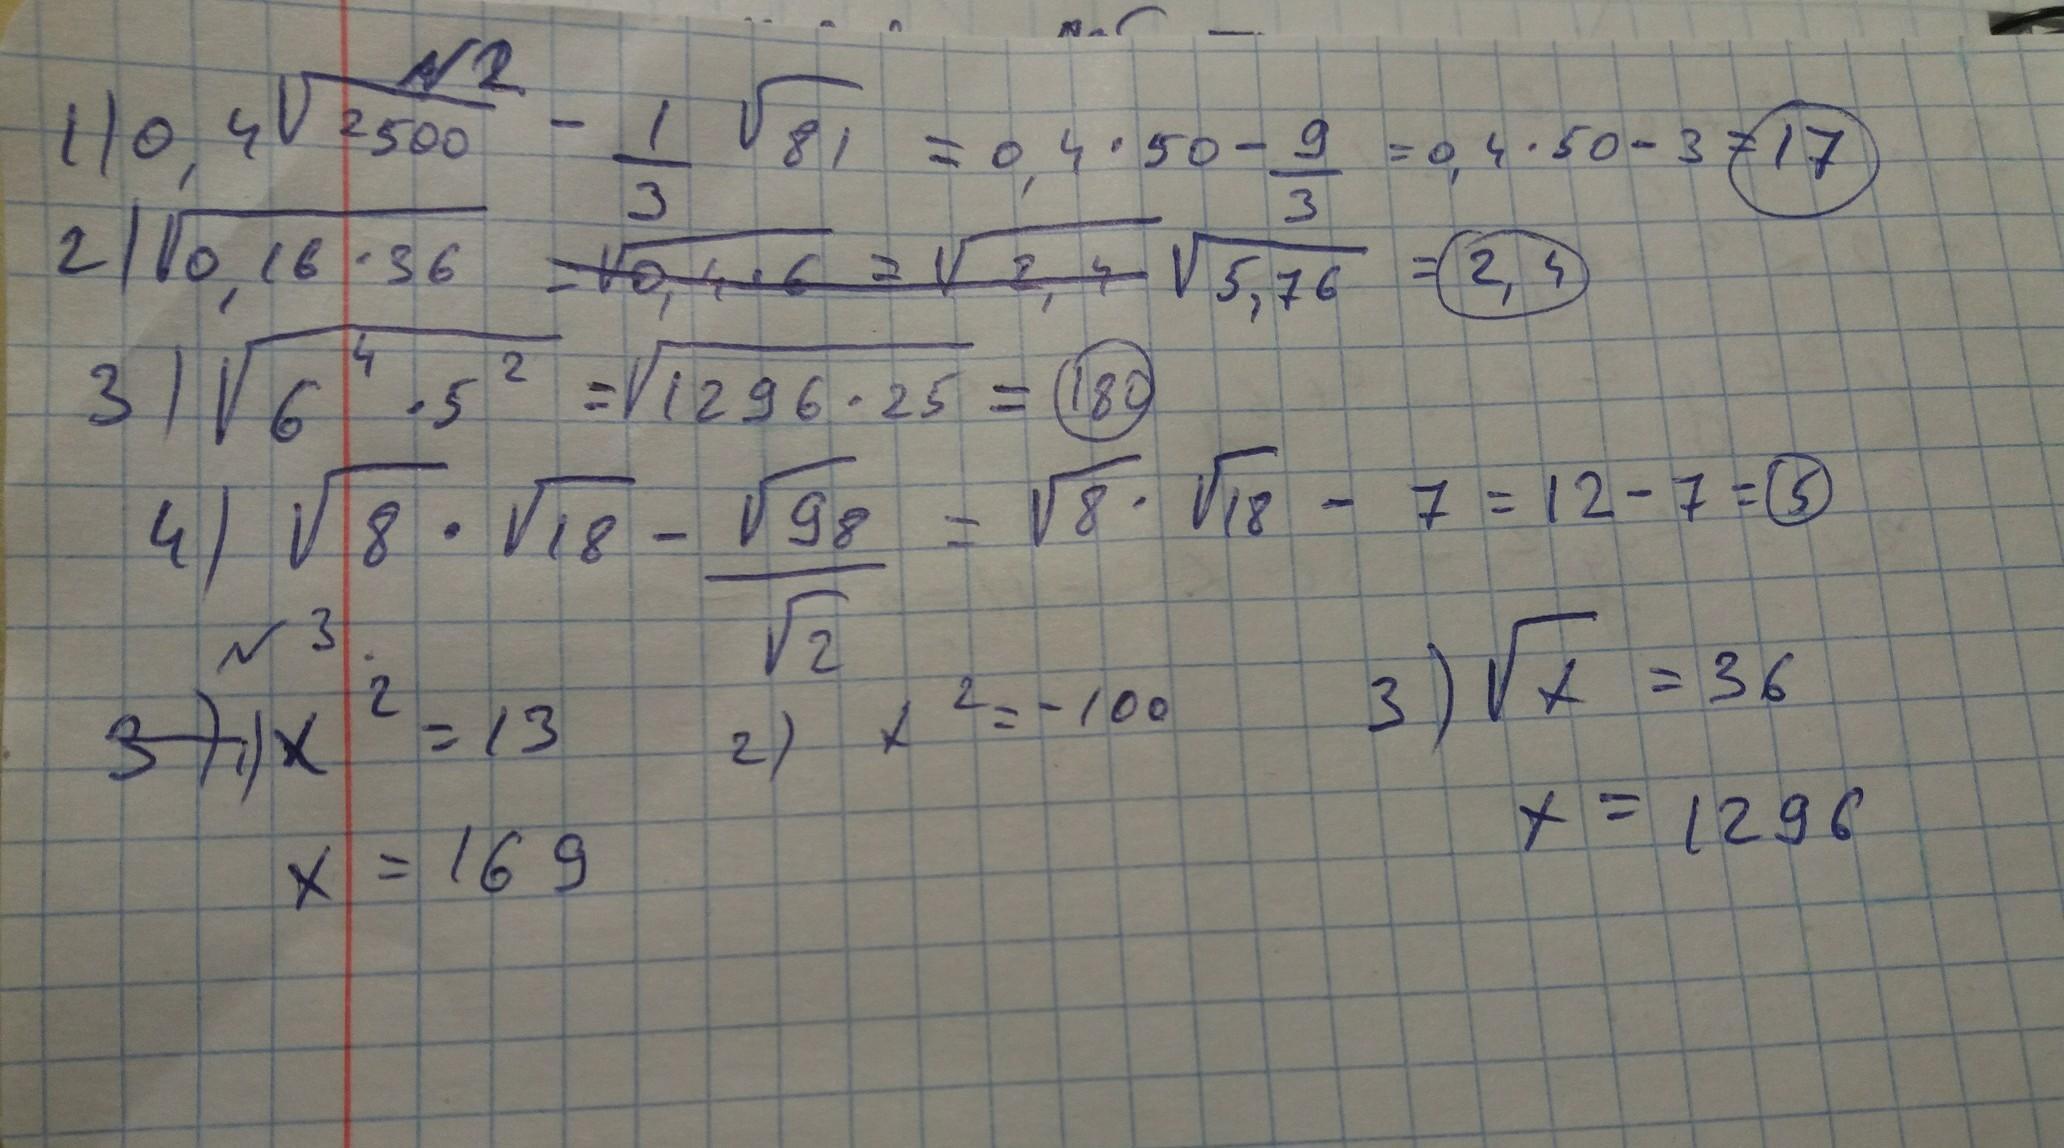 N2
1) 0,4√2500 - 1/3 √81 = 0,4·50 - 9/3 = 0,4·50 - 3 = 17
2) √0,16·36 = √0,4·6 = √2,4 √5,76 = 2,4
3) √6⁴·5² = √1296·25 = 180
4) √8 · √18 - √98/√2 = √8 · √18 - 7 = 12 - 7 = 5
N3.
3) 1) x² = 13 2) x² = -100 3) √x = 36
x = 169 x = 1296